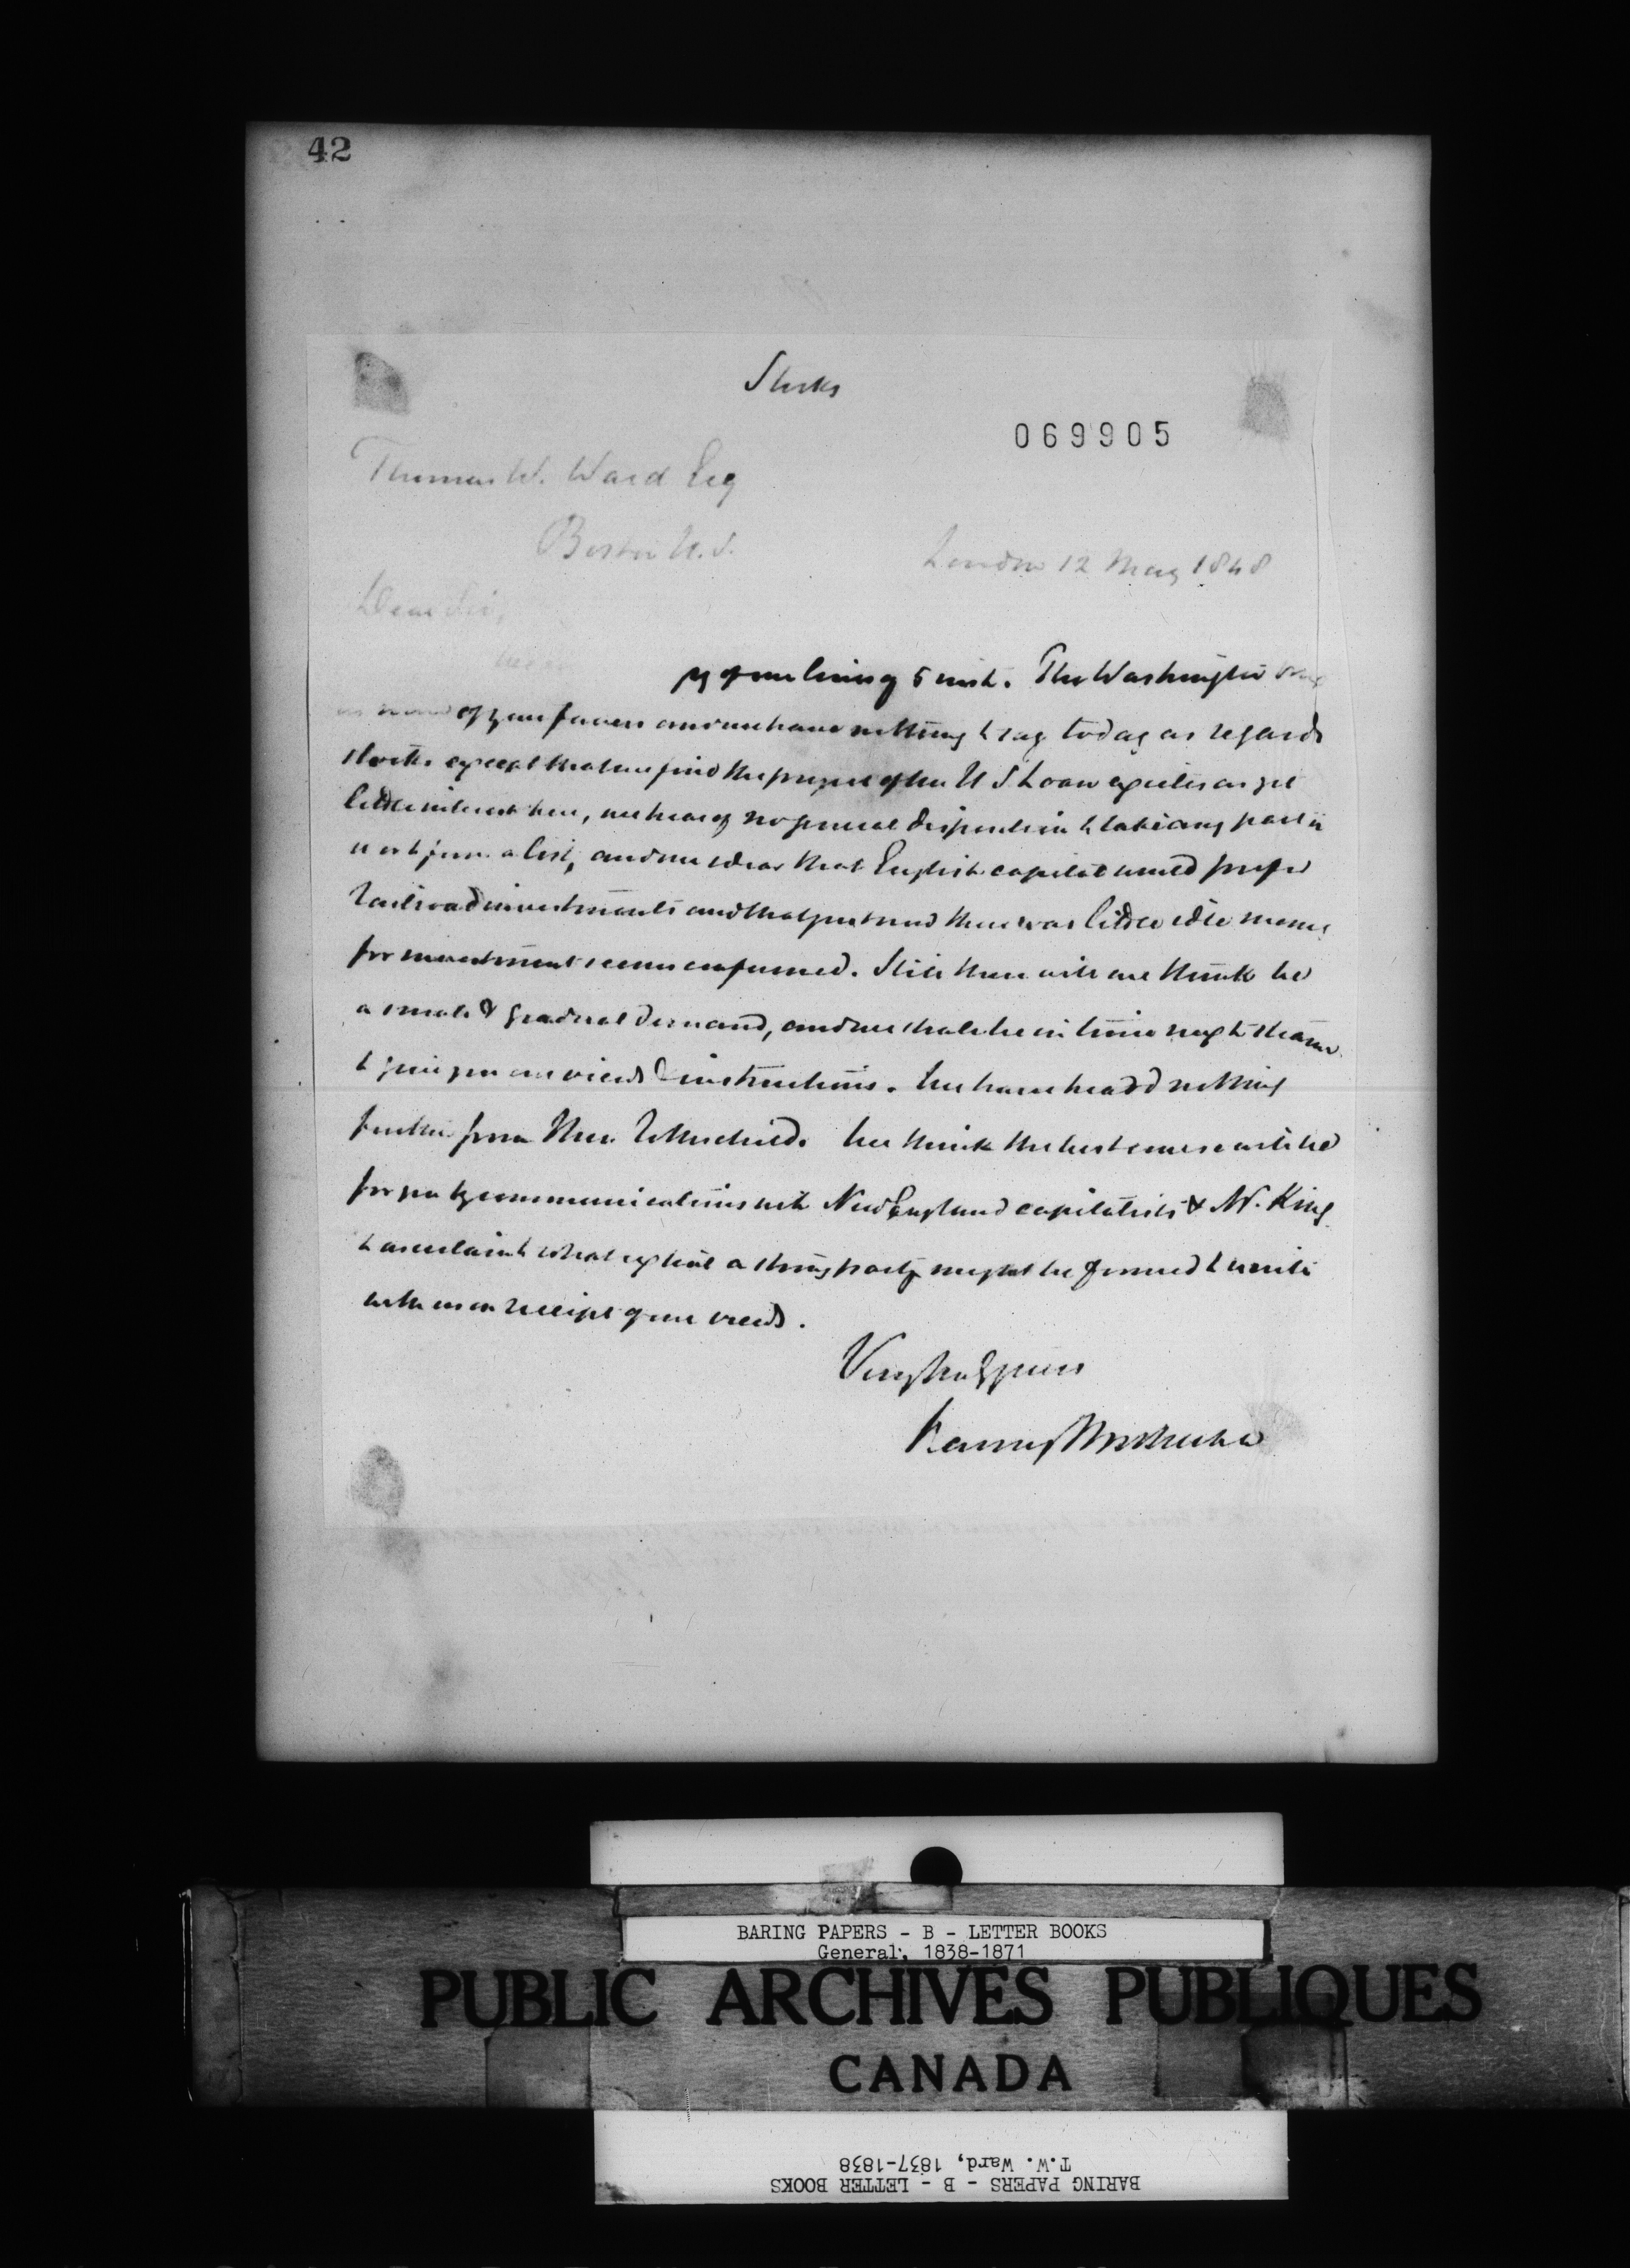 42
Stocks
069905
Thomas W. Ward Esq
Boston U.S.
London 12 May 1848
Dear Sir,
py of our lines of 5 inst. The Washington
of your favors and we have nothing to say today as regards
Stocks except that we find the project of the U S Loan excites as yet
little interest here, we hear of no general disposition to take any part in
it or to form a list, and our ideas that English capital would prefer
Railroad investments and that just now there was little idle money
for investment seems confirmed. Still there will we think be
a small & gradual demand, and we shall be in time next steamer
to give you our views & instructions. We have heard nothing
further from Mess. Rothschild. We think the best course will be
for you by communications with New England capitalists & Mr. King
to ascertain to what extent a strong party might be formed to unite
with us on receipt of our views.
Very truly yours
Baring Brothers & Co
BARING PAPERS - B - LETTER BOOKS
General, 1838-1871
PUBLIC ARCHIVES PUBLIQUES
CANADA
BARING PAPERS - B - LETTER BOOKS
T.W. Ward, 1837-1838